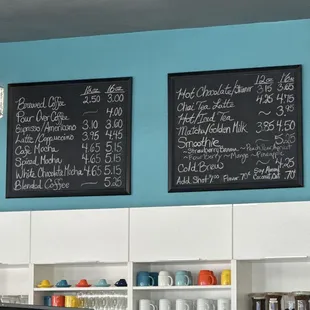 12oz 16oz
Brewed Coffee 2.50 3.00
Pour Over Coffee — 4.00
Espresso/Americano 3.10 3.60
Latte/Cappuccino 3.95 4.45
Cafe Mocha 4.65 5.15
Spiced Mocha 4.65 5.15
White Chocolate Mocha 4.65 5.15
Blended Coffee ~ 5.15
12oz 16oz
Hot Chocolate/Steamer 3.15 3.65
Chai Tea Latte 4.25 4.75
Hot/Iced Tea ~ 3.
Matcha/Golden Milk 3.85 4.50
Smoothie ~ 5.15
Strawberry Banana Peach
Four Berry ~ Mango ~ Pineapple
Cold Brew ~ 4.25
Add Shot .70 Flavor .70 .70